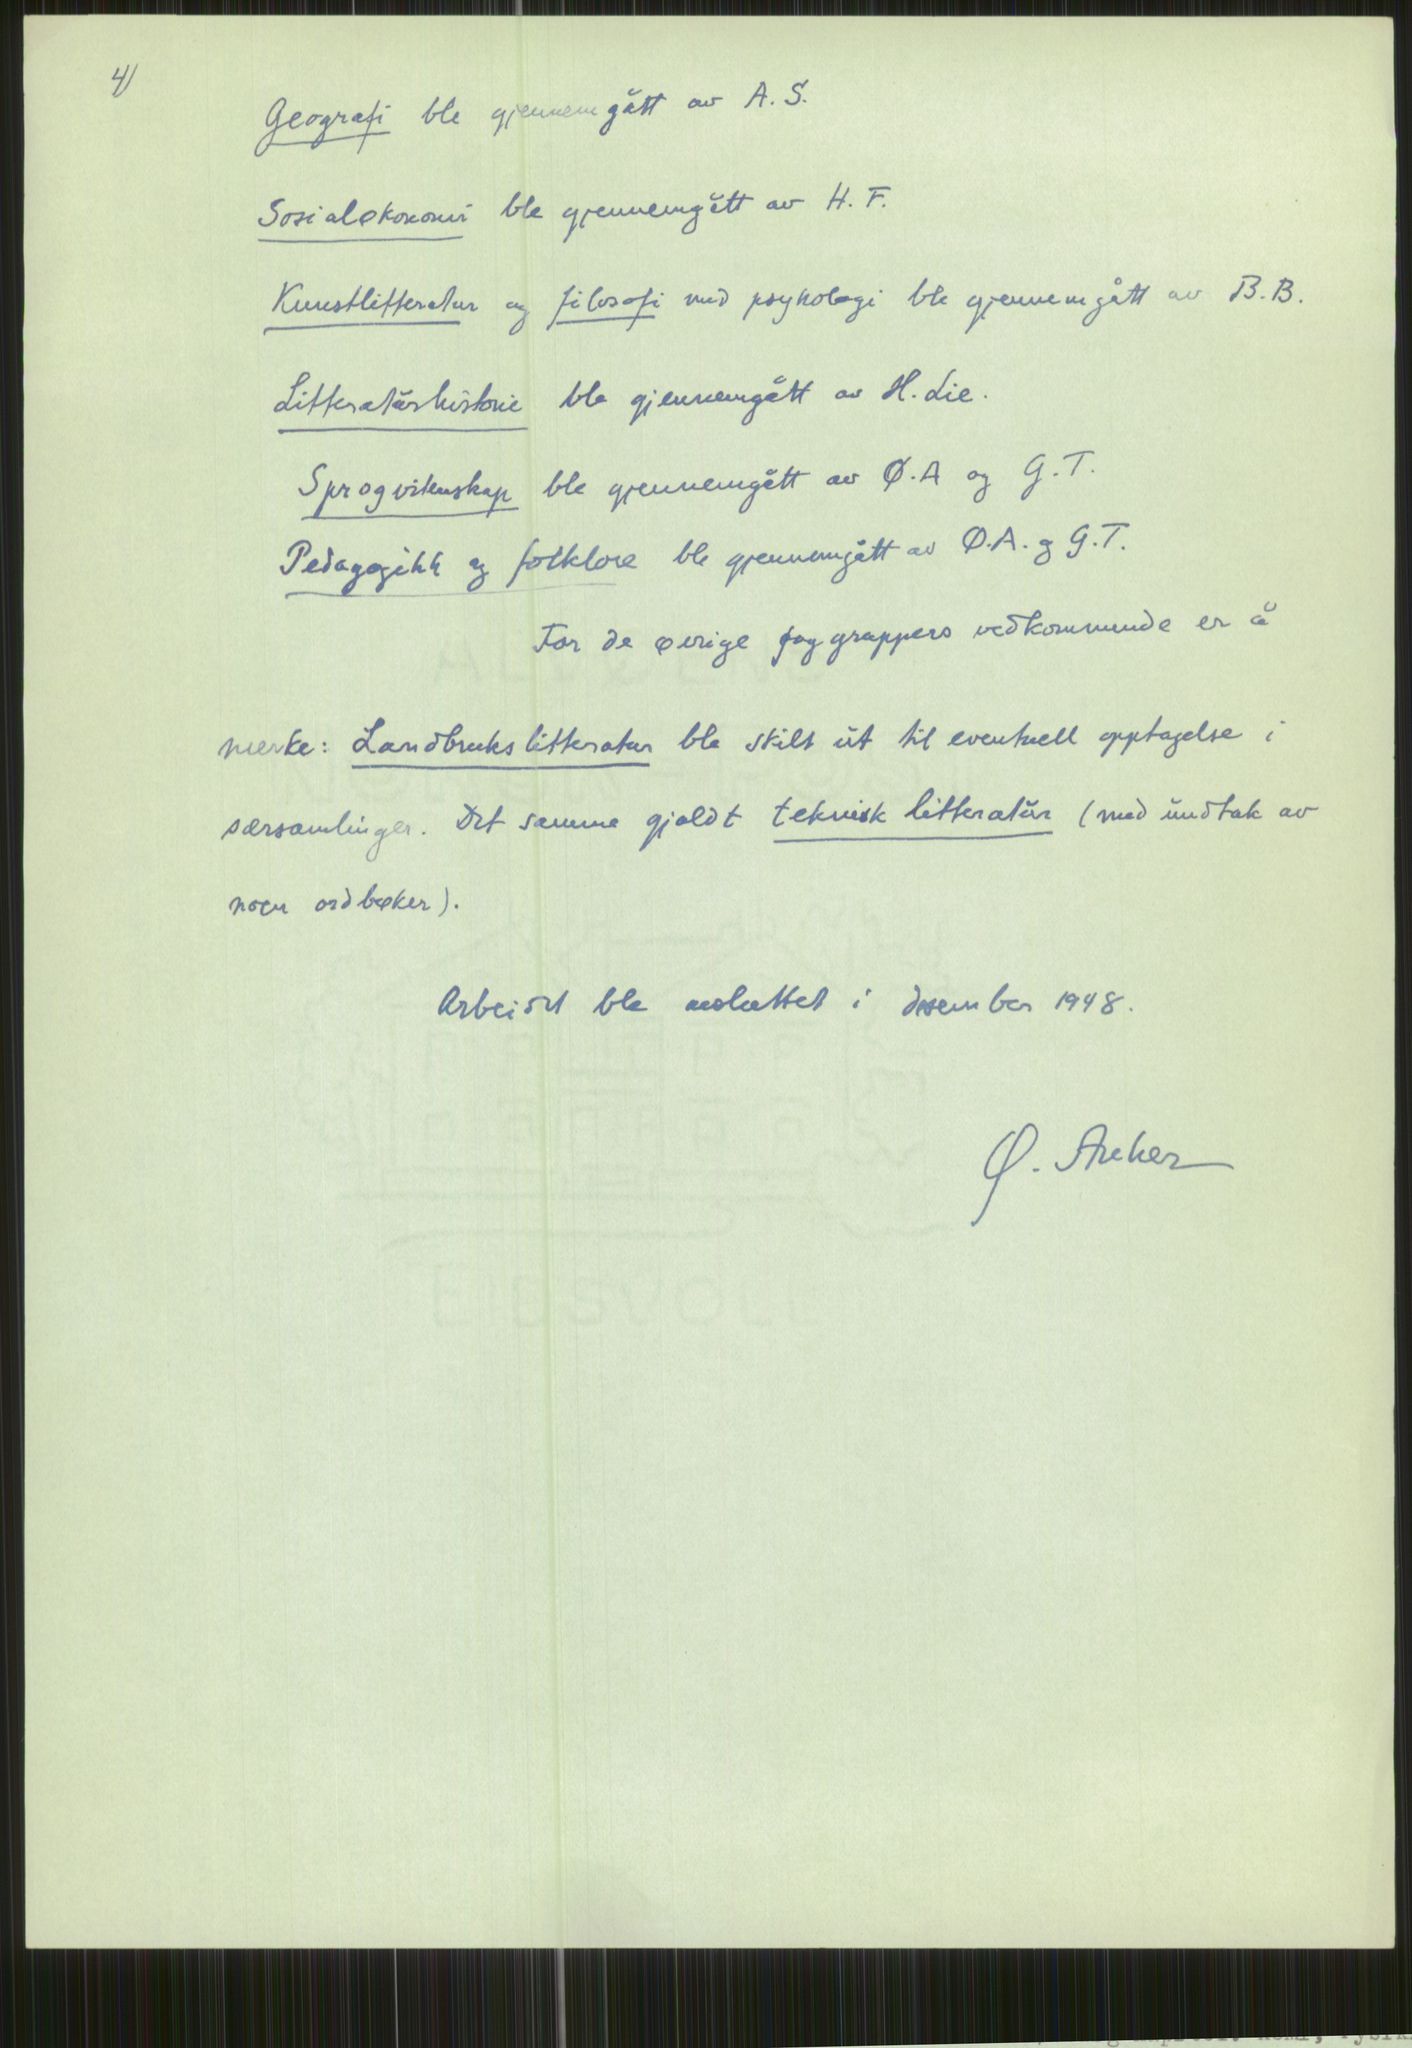 4)
Geografi ble gjennemgått av A. S.
Sosialøkonomi ble gjennemgått av H. F.
Kunstlitteratur og filosofi med psykologi ble gjennemgått av B. B.
Litteraturhistorie ble gjennemgått av H. Lie.
Sprogvitenskap ble gjennemgått av Ø. A og G. T.
Pedagogikk og folklore ble gjennemgått av Ø. A. og G. T.
For de øvrige faggruppers vedkommende er å
merke: Landbrukslitteratur ble skilt ut til eventuell opptagelse i
særsamlinger. Det samme gjaldt teknisk litteratur (med undtak av
noen ordbøker).
Arbeidet ble avsluttet i desember 1948.
Ø. Anker